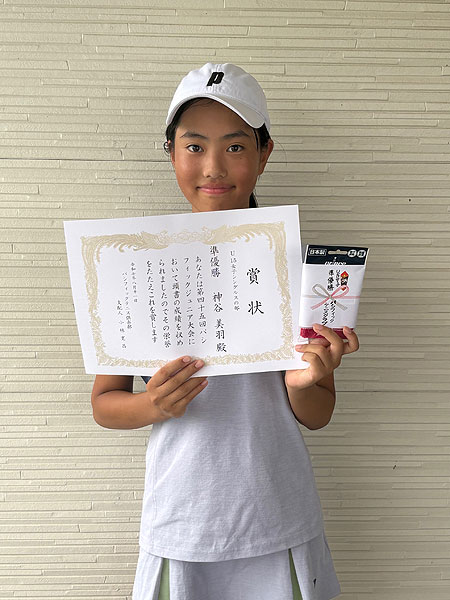 p
賞状
U15女子シングルスの部
準優勝 神谷美羽殿
あなたは第四十五回パシ
フィックジュニア大会に
おいて頭書の成績を収め
られましたのでその栄誉
をたたえこれを賞します
パシフィックテニス倶楽部
日本製
prince
準優勝